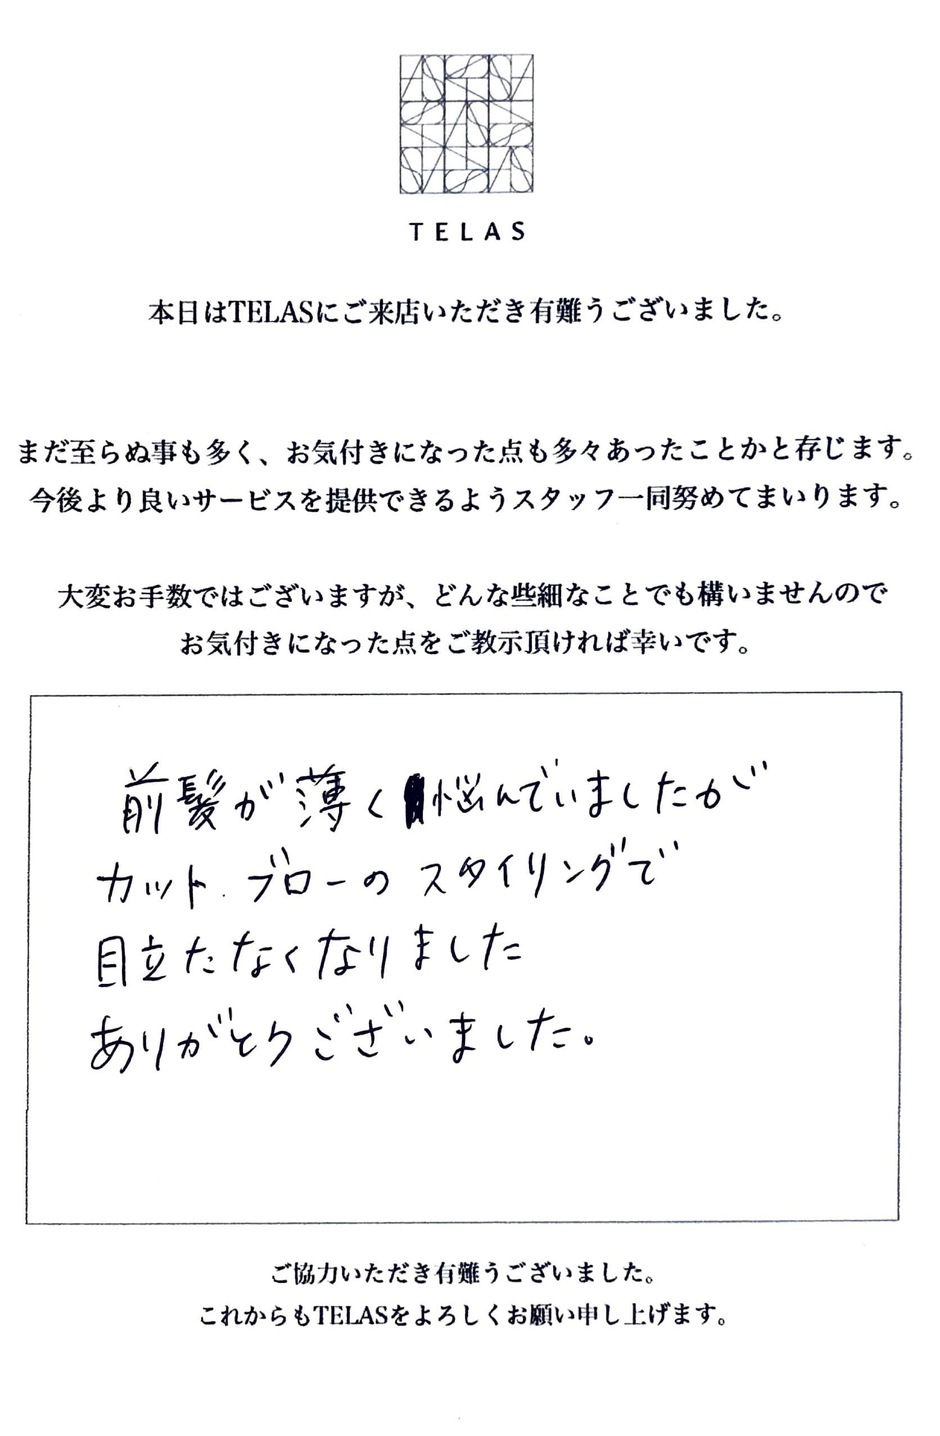 TELAS
本日はTELASにご来店いただき有難うございました。
まだ至らぬ事も多く、お気付きになった点も多々あったことかと存じます。
今後より良いサービスを提供できるようスタッフ一同努めてまいります。
大変お手数ではございますが、どんな些細なことでも構いませんので
お気付きになった点をご教示頂ければ幸いです。
前髪が薄く悩んでいましたが
カット.ブローのスタイリングで
目立たなくなりました
ありがとうございました。
ご協力いただき有難うございました。
これからもTELASをよろしくお願い申し上げます。